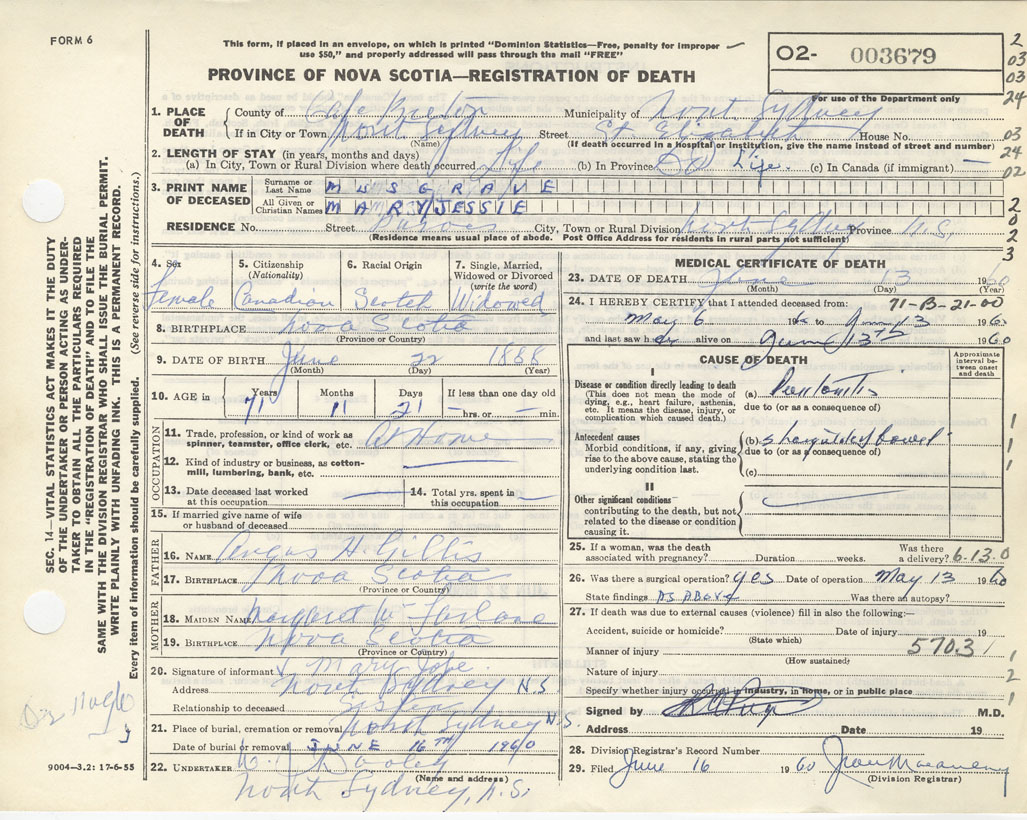 FORM 6
This form, if placed in an envelope, on which is printed "Dominion Statistics—Free, penalty for improper use $50," and properly addressed will pass through the mail "FREE"
PROVINCE OF NOVA SCOTIA—REGISTRATION OF DEATH
02- 003679
For use of the Department only
2
03
03
24
03
24
02
2
0
2
2
3
1. PLACE OF DEATH
County of Cape Breton Municipality of North Sydney
If in City or Town North Sydney Street St Elizabeth House No.
(Name) (If death occurred in a hospital or institution, give the name instead of street and number)
2. LENGTH OF STAY (in years, months and days)
(a) In City, Town or Rural Division where death occurred Life (b) In Province Life. (c) In Canada (if immigrant) —
3. PRINT NAME OF DECEASED
Surname or Last Name MUSGRAVE
All Given or Christian Names MARY JESSIE
RESIDENCE No. Street City, Town or Rural Division North Sydney Province N.S.
(Residence means usual place of abode. Post Office Address for residents in rural parts not sufficient)
4. Sex Female
5. Citizenship (Nationality) Canadian
6. Racial Origin Scotch
7. Single, Married, Widowed or Divorced (write the word) Widowed
8. BIRTHPLACE Nova Scotia
(Province or Country)
9. DATE OF BIRTH June 22 1888
(Month) (Day) (Year)
10. AGE in Years 71 Months 11 Days 21 If less than one day — hrs. or — min.
OCCUPATION
11. Trade, profession, or kind of work as spinner, teamster, office clerk, etc. At Home
12. Kind of industry or business, as cotton-mill, lumbering, bank, etc. —
13. Date deceased last worked at this occupation —
14. Total yrs. spent in this occupation —
15. If married give name of wife or husband of deceased
FATHER
16. NAME Angus H. Gillis
17. BIRTHPLACE Nova Scotia
(Province or Country)
MOTHER
18. MAIDEN NAME Margaret McFarlane
19. BIRTHPLACE Nova Scotia
(Province or Country)
20. Signature of informant Mary
Address North Sydney N.S.
Relationship to deceased Sister
21. Place of burial, cremation or removal North Sydney N.S.
Date of burial or removal JUNE 16TH 1960
22. UNDERTAKER Dooley
(Name and address)
North Sydney, N.S.
MEDICAL CERTIFICATE OF DEATH
23. DATE OF DEATH June 13 1960
(Month) (Day) (Year)
24. I HEREBY CERTIFY that I attended deceased from: 71-B-21-00
May 6 196 to June 13 1960
and last saw her alive on June 13th 1960
CAUSE OF DEATH
Approximate interval between onset and death
I
Disease or condition directly leading to death
(This does not mean the mode of dying, e.g., heart failure, asthenia, etc. It means the disease, injury, or complication which caused death.)
(a) Peritonitis
due to (or as a consequence of)
Antecedent causes
Morbid conditions, if any, giving rise to the above cause, stating the underlying condition last.
(b) bowel
due to (or as a consequence of)
(c)
II
Other significant conditions
contributing to the death, but not related to the disease or condition causing it.
1
1
1
25. If a woman, was the death associated with pregnancy? Duration weeks. Was there a delivery? 6-13.0
26. Was there a surgical operation? yes Date of operation May 13 1960
State findings AS ABOVE Was there an autopsy?
27. If death was due to external causes (violence) fill in also the following:—
Accident, suicide or homicide? Date of injury 19
(State which)
Manner of injury 5703
(How sustained)
Nature of injury
Specify whether injury occurred in industry, in home, or in public place
1
2
1
Signed by M.D.
Address Date 19
28. Division Registrar's Record Number
29. Filed June 16 1960
(Division Registrar)
SEC. 14—VITAL STATISTICS ACT MAKES IT THE DUTY OF THE UNDERTAKER OR PERSON ACTING AS UNDERTAKER TO OBTAIN ALL THE PARTICULARS REQUIRED IN THE "REGISTRATION OF DEATH" AND TO FILE THE SAME WITH THE DIVISION REGISTRAR WHO SHALL ISSUE THE BURIAL PERMIT.
WRITE PLAINLY WITH UNFADING INK. THIS IS A PERMANENT RECORD.
Every item of information should be carefully supplied. (See reverse side for instructions.)
9004—3.2: 17-6-55